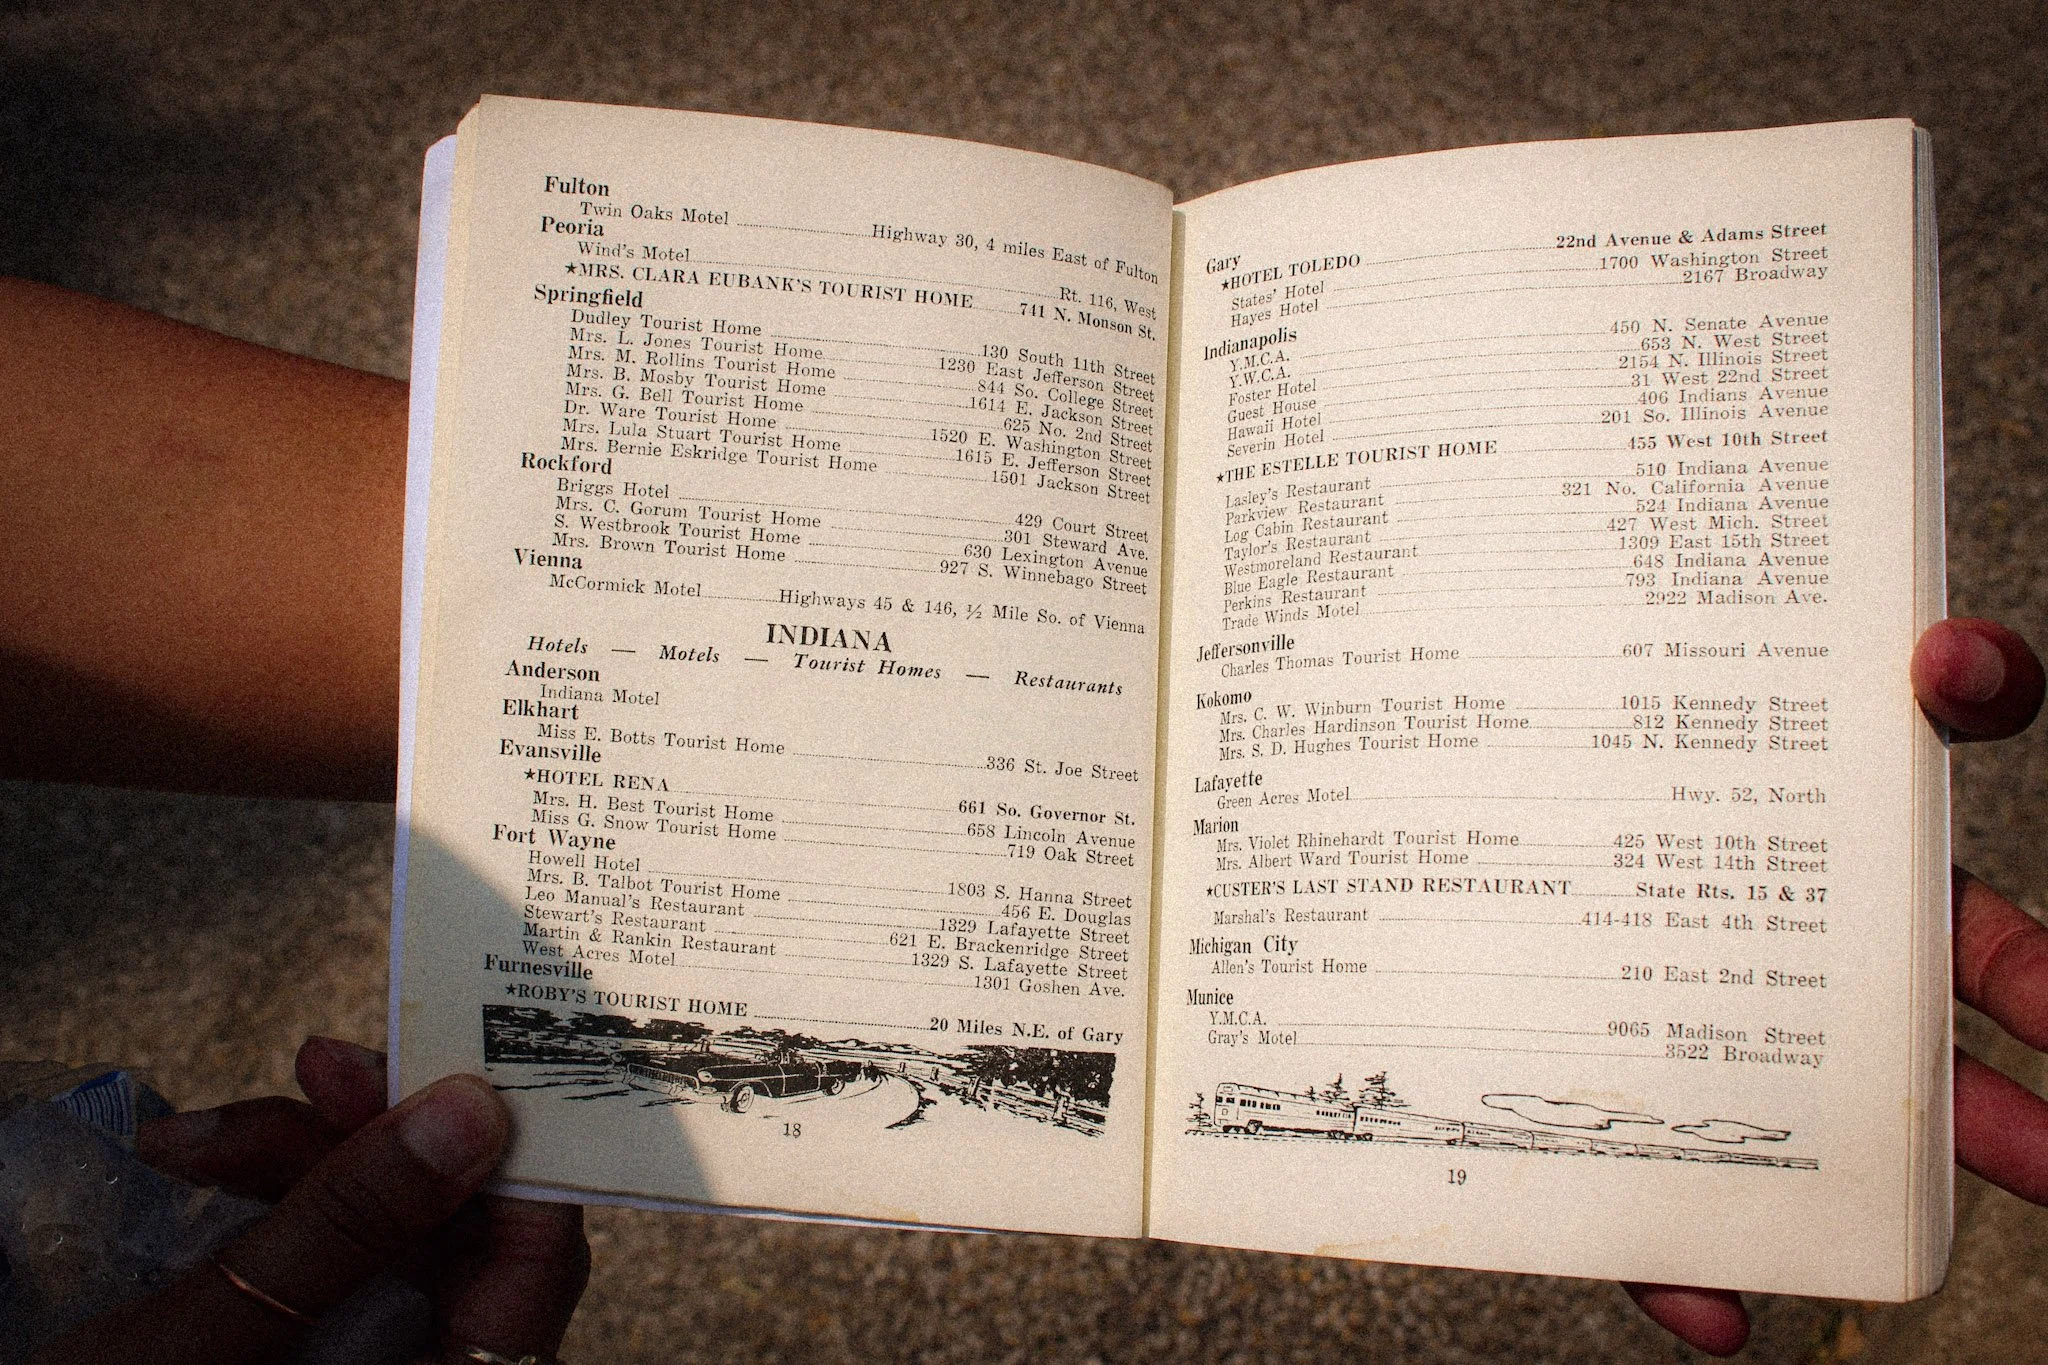 Fulton
Twin Oaks Motel Highway 30, 4 miles East of Fulton
Peoria
Wind's Motel Rt. 116, West
★MRS. CLARA EUBANK'S TOURIST HOME 741 N. Monson St.
Springfield
Dudley Tourist Home 130 South 11th Street
Mrs. L. Jones Tourist Home 1230 East Jefferson Street
Mrs. M. Rollins Tourist Home 844 So. College Street
Mrs. B. Mosby Tourist Home 1614 E. Jackson Street
Mrs. G. Bell Tourist Home 625 No. 2nd Street
Dr. Ware Tourist Home 1520 E. Washington Street
Mrs. Lula Stuart Tourist Home 1615 E. Jefferson Street
Mrs. Bernie Eskridge Tourist Home 1501 Jackson Street
Rockford
Briggs Hotel 429 Court Street
Mrs. C. Gorum Tourist Home 301 Steward Ave.
S. Westbrook Tourist Home 630 Lexington Avenue
Mrs. Brown Tourist Home 927 S. Winnebago Street
Vienna
McCormick Motel Highways 45 & 146, ½ Mile So. of Vienna
INDIANA
Hotels — Motels — Tourist Homes — Restaurants
Anderson
Indiana Motel
Elkhart
Miss E. Botts Tourist Home 336 St. Joe Street
Evansville
★HOTEL RENA 661 So. Governor St.
Mrs. H. Best Tourist Home 658 Lincoln Avenue
Miss G. Snow Tourist Home 719 Oak Street
Fort Wayne
Howell Hotel 1803 S. Hanna Street
Mrs. B. Talbot Tourist Home 456 E. Douglas
Leo Manual's Restaurant 1329 Lafayette Street
Stewart's Restaurant 621 E. Brackenridge Street
Martin & Rankin Restaurant 1329 S. Lafayette Street
West Acres Motel 1301 Goshen Ave.
Furnesville
★ROBY'S TOURIST HOME 20 Miles N.E. of Gary
18
Gary
★HOTEL TOLEDO 22nd Avenue & Adams Street
States' Hotel 1700 Washington Street
Hayes Hotel 2167 Broadway
Indianapolis
Y.M.C.A. 450 N. Senate Avenue
Y.W.C.A. 653 N. West Street
Foster Hotel 2154 N. Illinois Street
Guest House 31 West 22nd Street
Hawaii Hotel 406 Indians Avenue
Severin Hotel 201 So. Illinois Avenue
★THE ESTELLE TOURIST HOME 455 West 10th Street
Lasley's Restaurant 510 Indiana Avenue
Parkview Restaurant 321 No. California Avenue
Log Cabin Restaurant 524 Indiana Avenue
Taylor's Restaurant 427 West Mich. Street
Westmoreland Restaurant 1309 East 15th Street
Blue Eagle Restaurant 648 Indiana Avenue
Perkins Restaurant 793 Indiana Avenue
Trade Winds Motel 2922 Madison Ave.
Jeffersonville
Charles Thomas Tourist Home 607 Missouri Avenue
Kokomo
Mrs. C. W. Winburn Tourist Home 1015 Kennedy Street
Mrs. Charles Hardinson Tourist Home 812 Kennedy Street
Mrs. S. D. Hughes Tourist Home 1045 N. Kennedy Street
Lafayette
Green Acres Motel Hwy. 52, North
Marion
Mrs. Violet Rhinehardt Tourist Home 425 West 10th Street
Mrs. Albert Ward Tourist Home 324 West 14th Street
★CUSTER'S LAST STAND RESTAURANT State Rts. 15 & 37
Marshal's Restaurant 414-418 East 4th Street
Michigan City
Allen's Tourist Home 210 East 2nd Street
Munice
Y.M.C.A. 9065 Madison Street
Gray's Motel 3522 Broadway
19